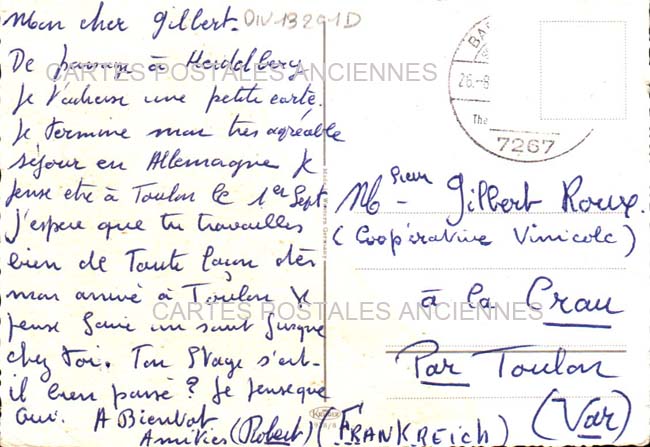 Mon cher Gilbert.
DIV-13291D
De passage à Heidelberg
Je t'adresse une petite carte.
Je termine mon très agréable
séjour en Allemagne Je
pense être à Toulon le 1er Sept
j'espère que tu travailles
bien de toute façon dès
mon arrivé à Toulon Je
pense faire un saut jusque
chez toi. Ton stage s'est-
il bien passé? Je pense que
oui. A Bientot
Amitiés (Robert) (FRANKREICH)
CARTES POSTALES ANCIENNES
CARTES POSTALES ANCIENNES
26.-8
The
7267
Msieur - Gilbert Roux.
(Coopérative Vinicole)
à la Crau
Par Toulon
(Var)
Krüger